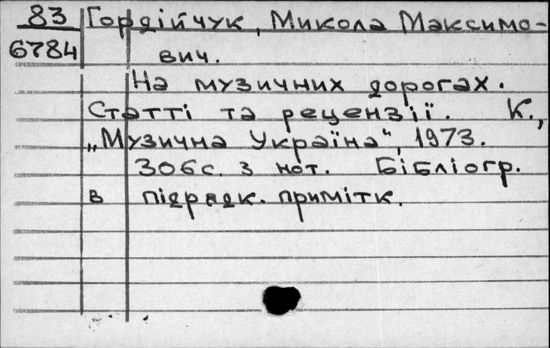 83 Гордійчук, Микола Максимо-
6784 вич.
На музичних дорогах.
Статті та рецензії. К.,
„Музична Україна", 1973.
306с. з нот. Бібліогр.
в підрядк. примітк.